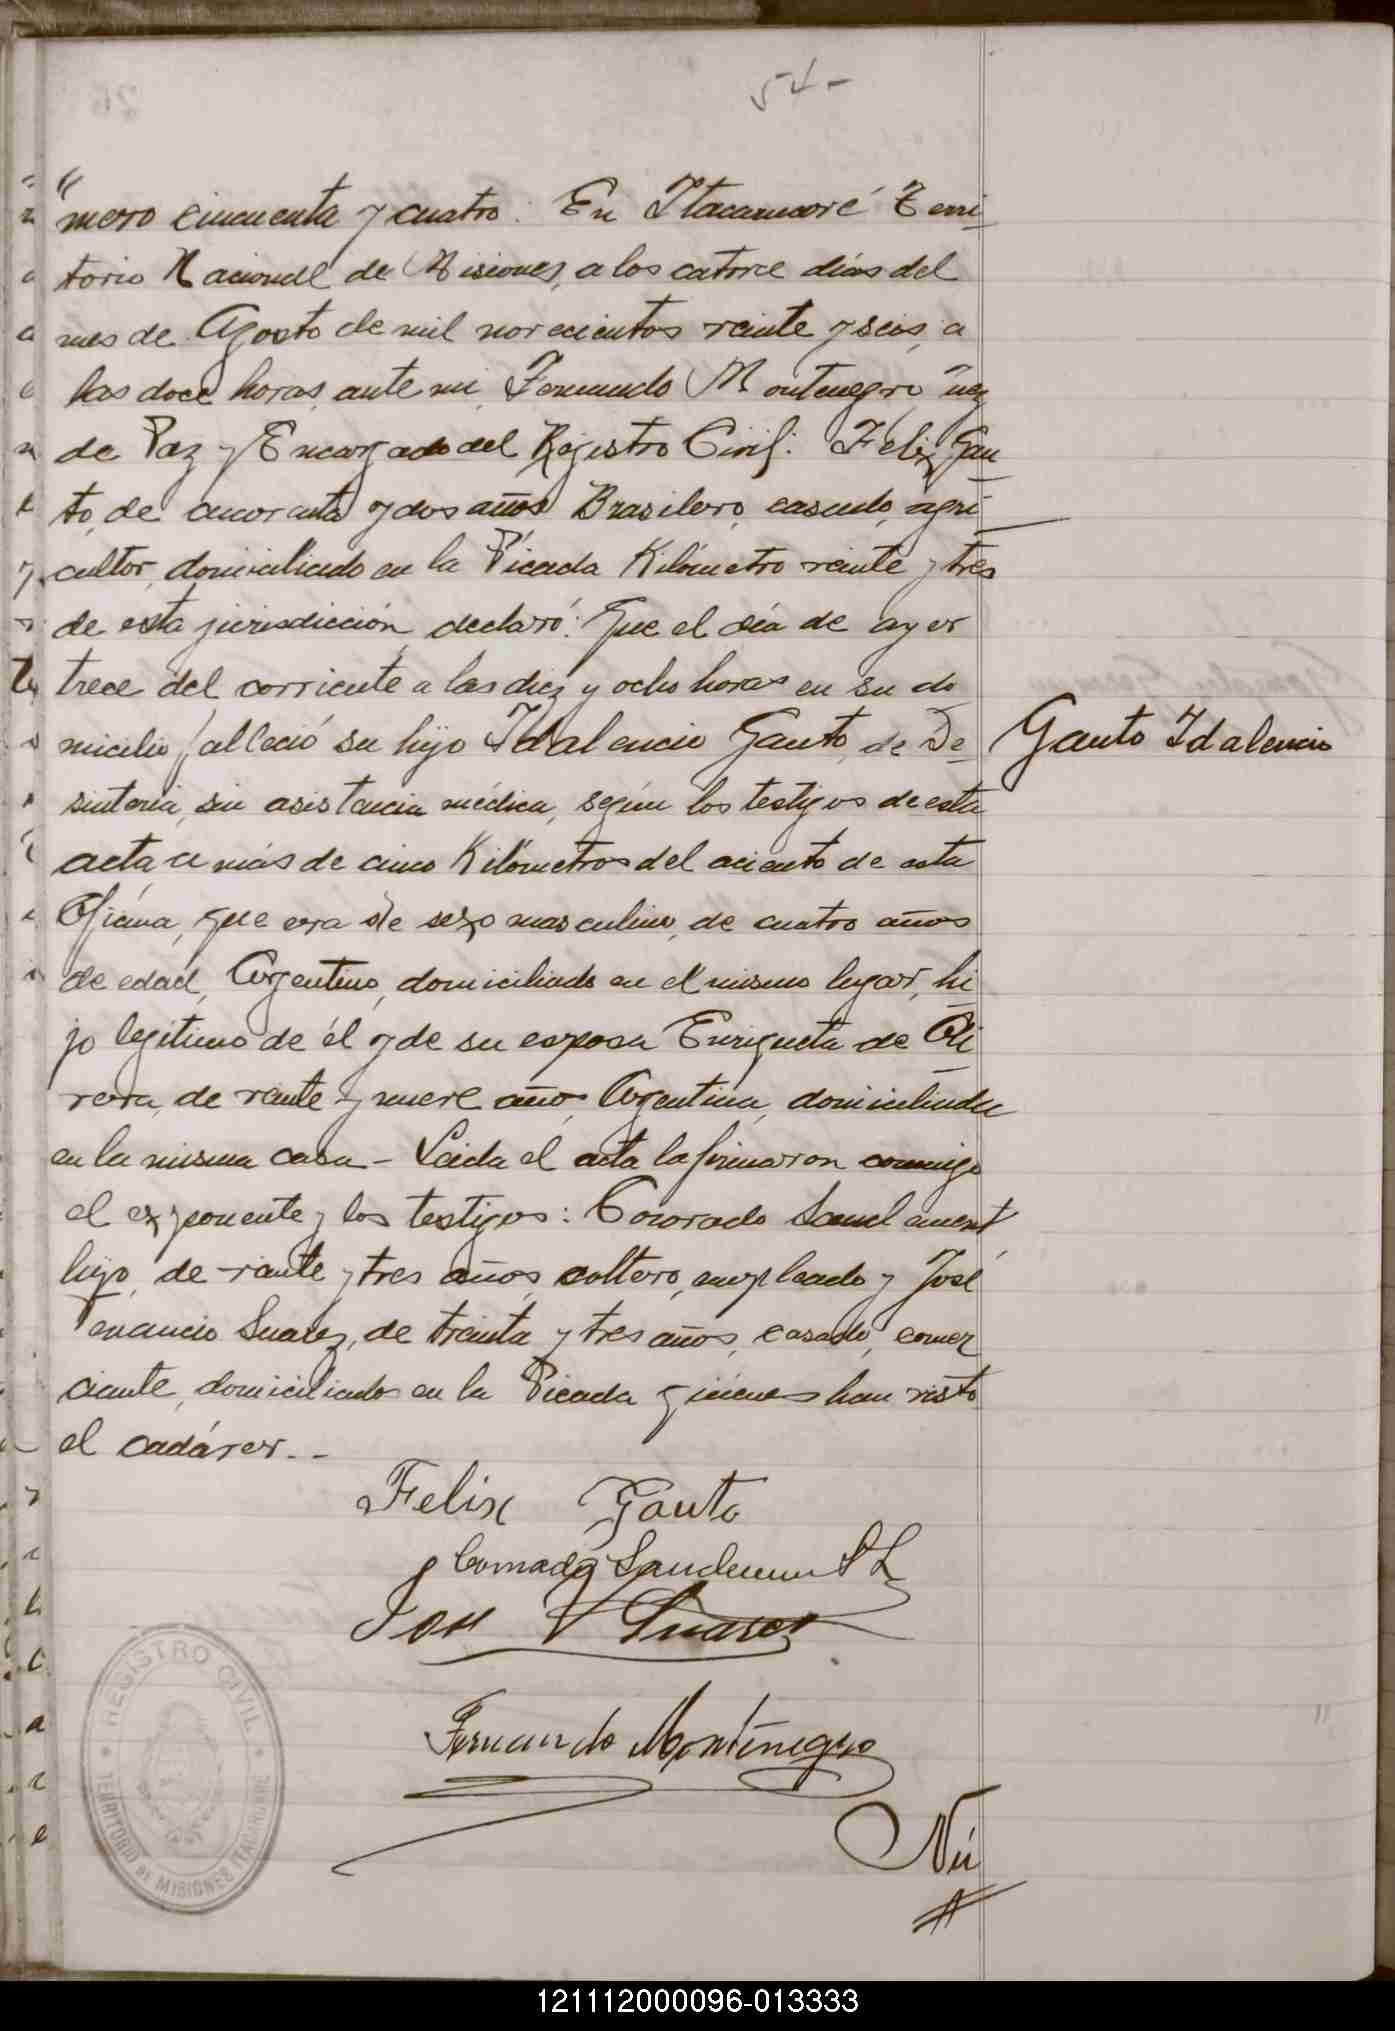 54-
"mero cincuenta y cuatro: En Itacaruaré Terri-
torio Nacional de Misiones, a los catorce días del
mes de Agosto de mil novecientos veinte y seis, a
las doce horas, ante mi, Fernando Montenegro Juez
de Paz y Encargado del Registro Civil: Felix Gau-
to, de cuarenta y dos años Brasilero, casado, agri-
cultor, domiciliado en la Picada Kilómetro veinte y tres
de esta jurisdicción, declaró: Que el día de ayer
trece del corriente a las diez y ocho horas en su do
micilio falleció su hijo Idalencio Gauto, de De-
Gauto Idalencio
sintería, sin asistencia médica, según los testigos de esta
acta a más de cinco Kilómetros del aciento de esta
Oficina, que era de sexo masculino, de cuatro años
de edad, Argentino, domiciliado en el mismo lugar, hi-
jo legitimo de él y de su esposa Enriqueta de Oli-
vera, de veinte y nueve años, Argentina, domiciliada
en la misma casa - Leida el acta la firmaron conmigo
el exponente y los testigos: Conrado
hijo, de veinte y tres años, soltero, empleado y José
Venancio Suarez, de treinta y tres años, casado, comer
ciante, domiciliados en la Picada quienes han visto
el cadáver. - -
Felix Gauto
Conrado
José V Suarez
Fernando Montenegro
REGISTRO CIVIL
TERRITORIO DE MISIONES ITACARUARE
Nú
121112000096-013333